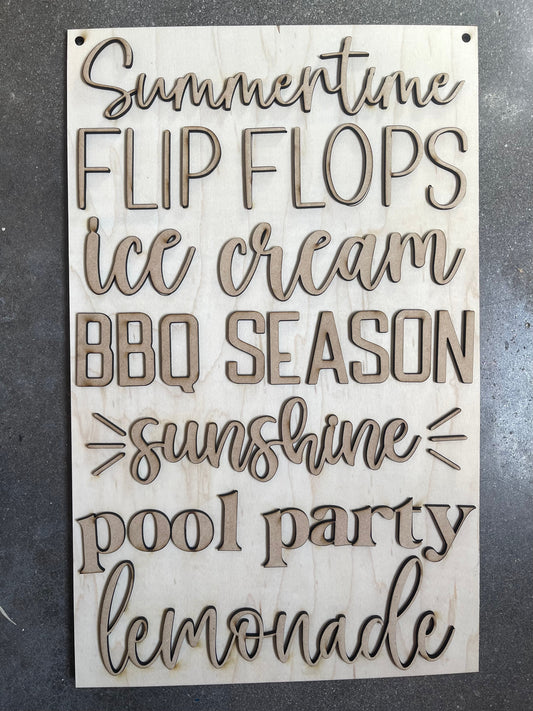 Summertime
FLIP FLOPS
ice cream
BBQ SEASON
sunshine
pool party
lemonade